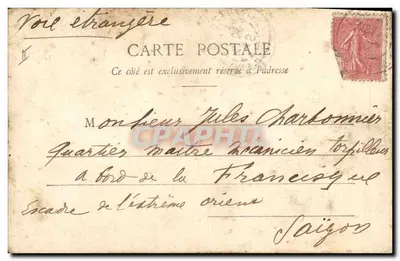 Voie etrangère
II
CARTE POSTALE
Ce côté est exclusivement réservé à l'adresse
Monsieur Jules Charbonnier
quartier maitre mecanicien torpilleur
a bord de la Francisque
Escadre de l'extrême orient
Saïgon
CPAPHIL